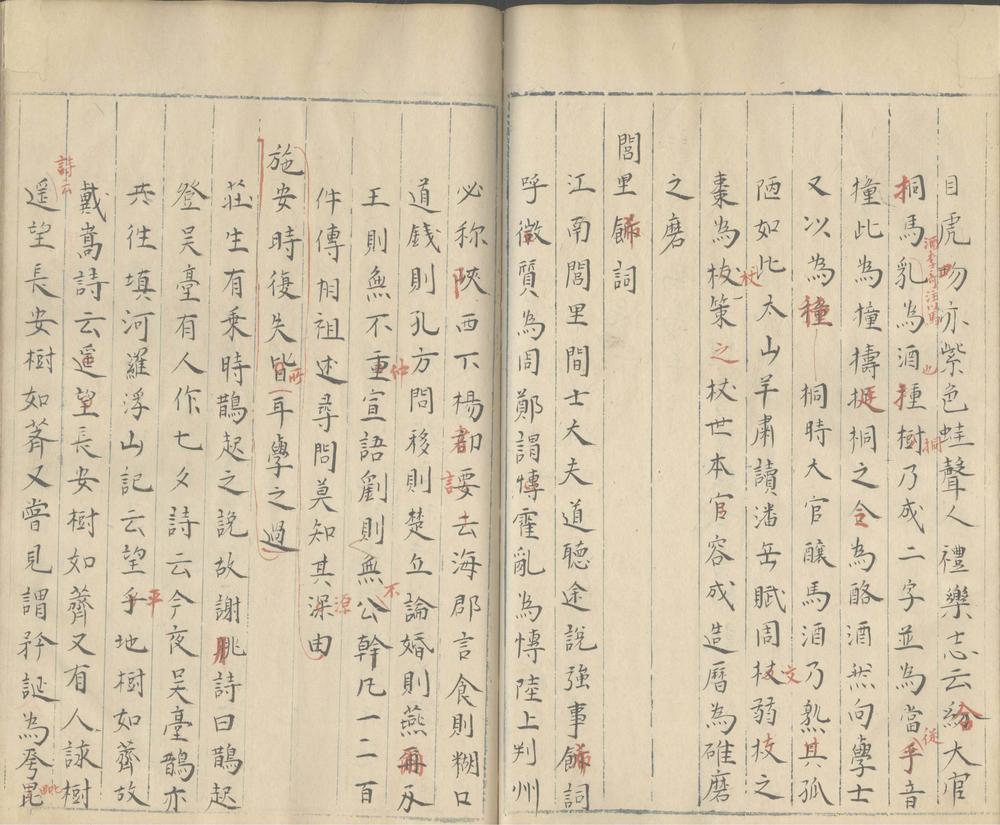 目虎吻亦紫色蛙聲人禮樂志云給大官
挏馬乳為酒揰樹乃成二字並為當手音
酒李奇注以馬
也
挏
從
撞此為撞擣挺桐之令為酪酒然向學士
又以為種桐時大官釀馬酒乃熟其孤
陋如此太山羊肅讀潘岳賦周杖弱枝之
文
棗為杖策之杖世本官容成造曆為碓磨
杖
之磨
閭里餙詞
江南閭里間士大夫道聽途說強事餙詞
呼徵質為周鄭謂慱霍亂為慱陸上判州
必称陝西下楊都要去海郡言食則糊口
言
道錢則孔方問移則楚丘論婚則燕爾及
王則無不重宣語劉則無公幹凡一二百
仲
不
件傳相祖述尋問莫知其深由
源
施安時復失皆耳學之過
所
莊生有乗時鵲起之說故謝朓詩曰鵲起
登吴臺有人作七夕詩云今夜吴臺鵲亦
共往填河羅浮山記云望乎地樹如薺故
平
戴嵩詩云遥望長安樹如薺又有人詠樹
詩云
遥望長安樹如薺又嘗見謂矜誕為夸毘
毗